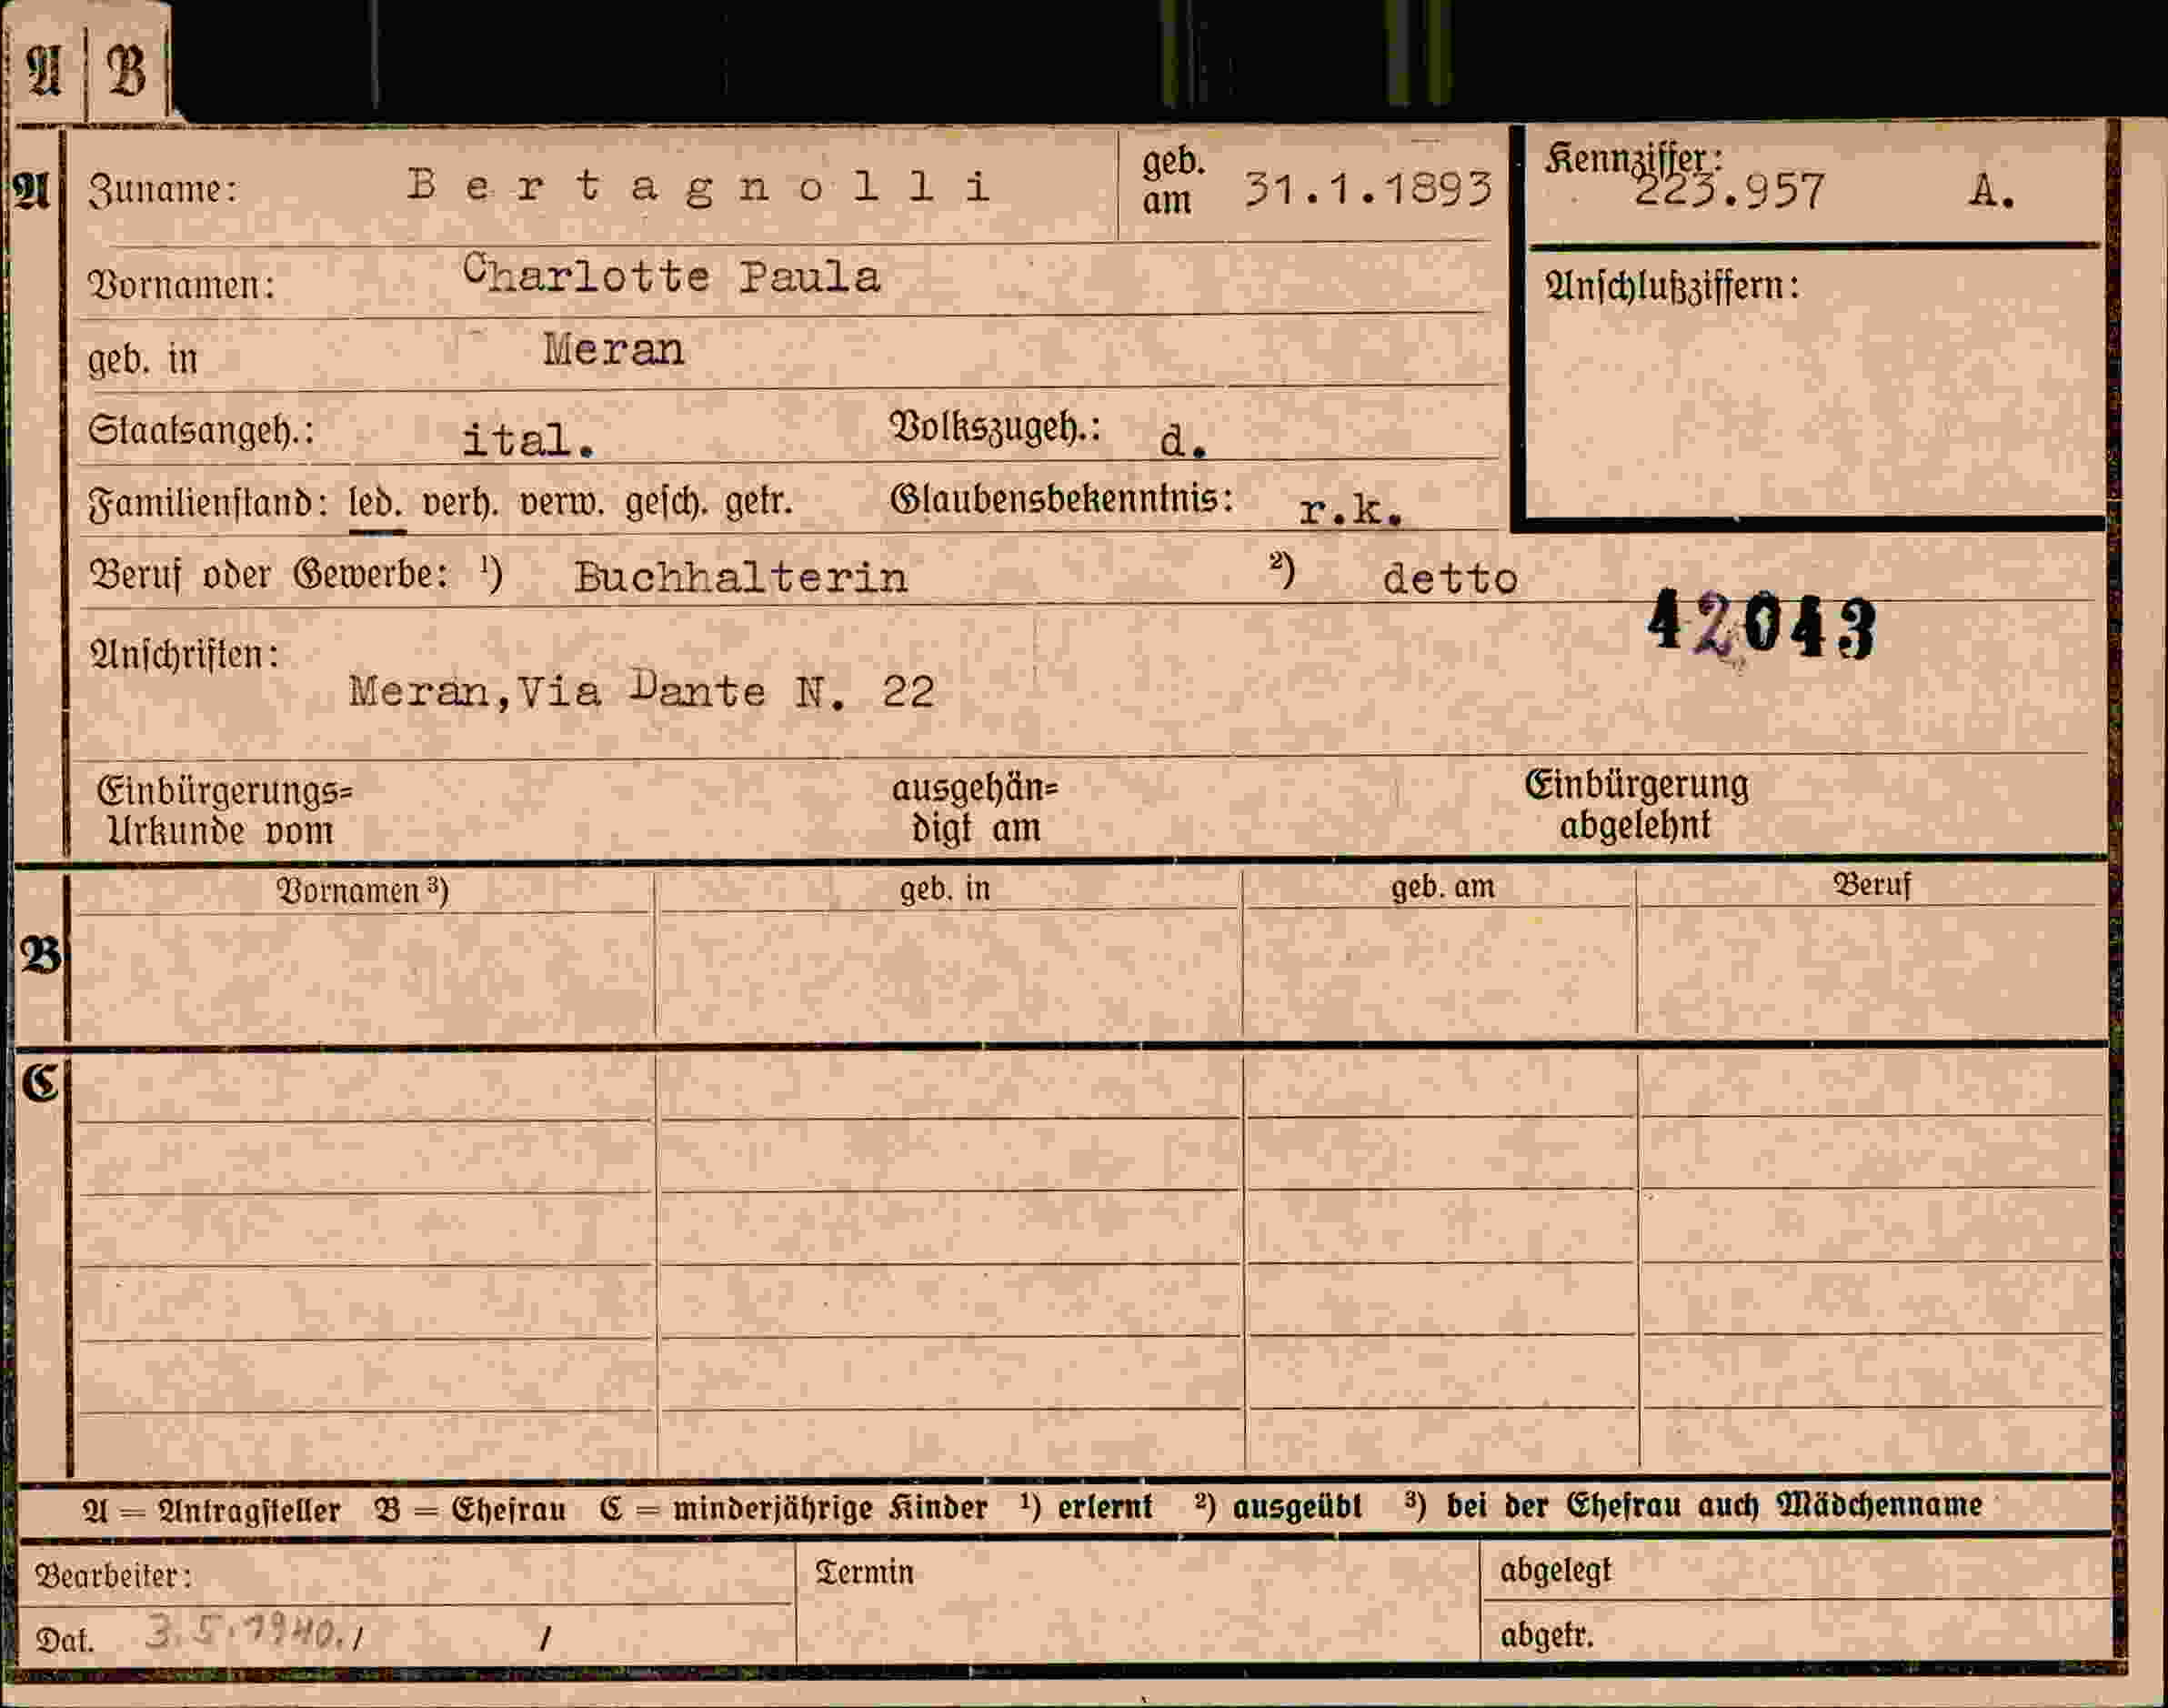 A B
A Zuname: Bertagnolli geb. am 31.1.1893 Kennziffer: 223.957 A.
Vornamen: Charlotte Paula Anschlußziffern:
geb. in Meran
Staatsangeh.: ital. Volkszugeh.: d.
Familienstand: led. verh. verw. gesch. getr. Glaubensbekenntnis: r.k.
Beruf oder Gewerbe: ¹) Buchhalterin ²) detto
42043
Anschriften:
Meran,Via Dante N. 22
Einbürgerungs= ausgehän= Einbürgerung
Urkunde vom digt am abgelehnt
Vornamen ³) geb. in geb. am Beruf
B
C
A = Antragsteller B = Ehefrau C = minderjährige Kinder ¹) erlernt ²) ausgeübt ³) bei der Ehefrau auch Mädchenname
Bearbeiter: Termin abgelegt
Dat. 3.5.1940. / / abgetr.